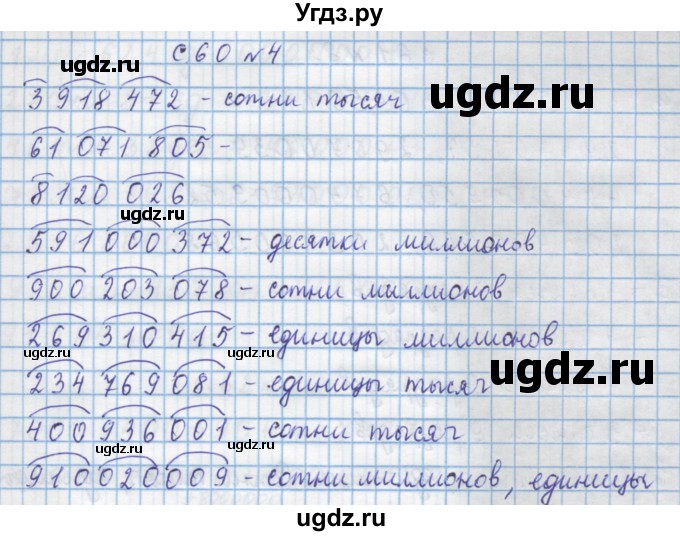 Угдз.ру
с 60 №4
3 918 472 - сотни тысяч
61 071 805 -
8 120 026
591 000 372 - десятки миллионов
900 203 078 - сотни миллионов
269 310 415 - единицы миллионов
234 769 081 - единицы тысяч
400 936 001 - сотни тысяч
910 020 009 - сотни миллионов, единицы
ugdz.ru
ugdz.ru
ugdz.ru
ugdz.ru
ugdz.ru
ugdz.ru
ugdz.ru
ugdz.ru
ugdz.ru
ugdz.ru
ugdz.ru
ugdz.ru